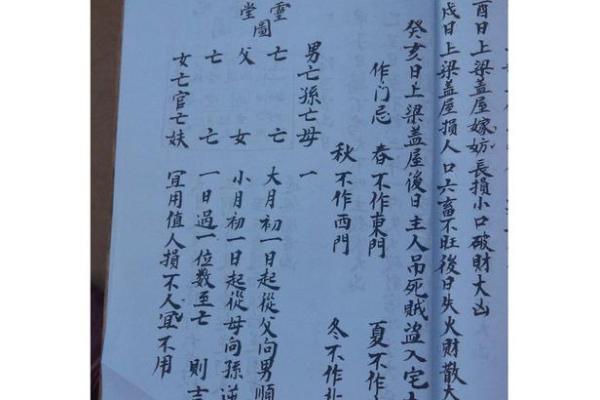 酉日上梁盖屋嫁妨長損小口破財大凶
戌日上梁盖屋損人口六畜不旺後日失火財散大
癸亥日上梁盖屋後日主人吊死贼盗入宅
作门忌 春不作東門 夏不作
秋不作西門 冬不作
男亡孫亡母 一
靈 亡 亡 大月初一日起從父向男順
堂圖 父 女 小月初一日起從母向孫逆
亡 亡 一日過一位数至亡 則吉
女亡官亡妖 宜用值人損不人宜不用